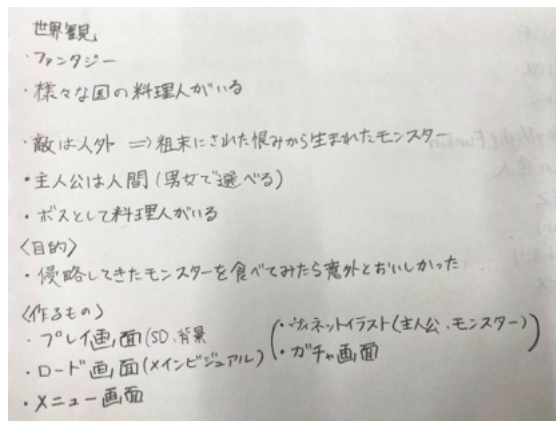 世界観
・ファンタジー
・様々な国の料理人がいる
・敵は人外 ⇒ 粗末にされた恨みから生まれたモンスター
・主人公は人間(男女で選べる)
・ボスとして料理人がいる
〈目的〉
・侵略してきたモンスターを食べてみたら意外とおいしかった
〈作るもの〉
・プレイ画面(SD、背景
・ロード画面(メインビジュアル)
・メニュー画面
(・ヴィネットイラスト(主人公、モンスター)
・ガチャ画面)